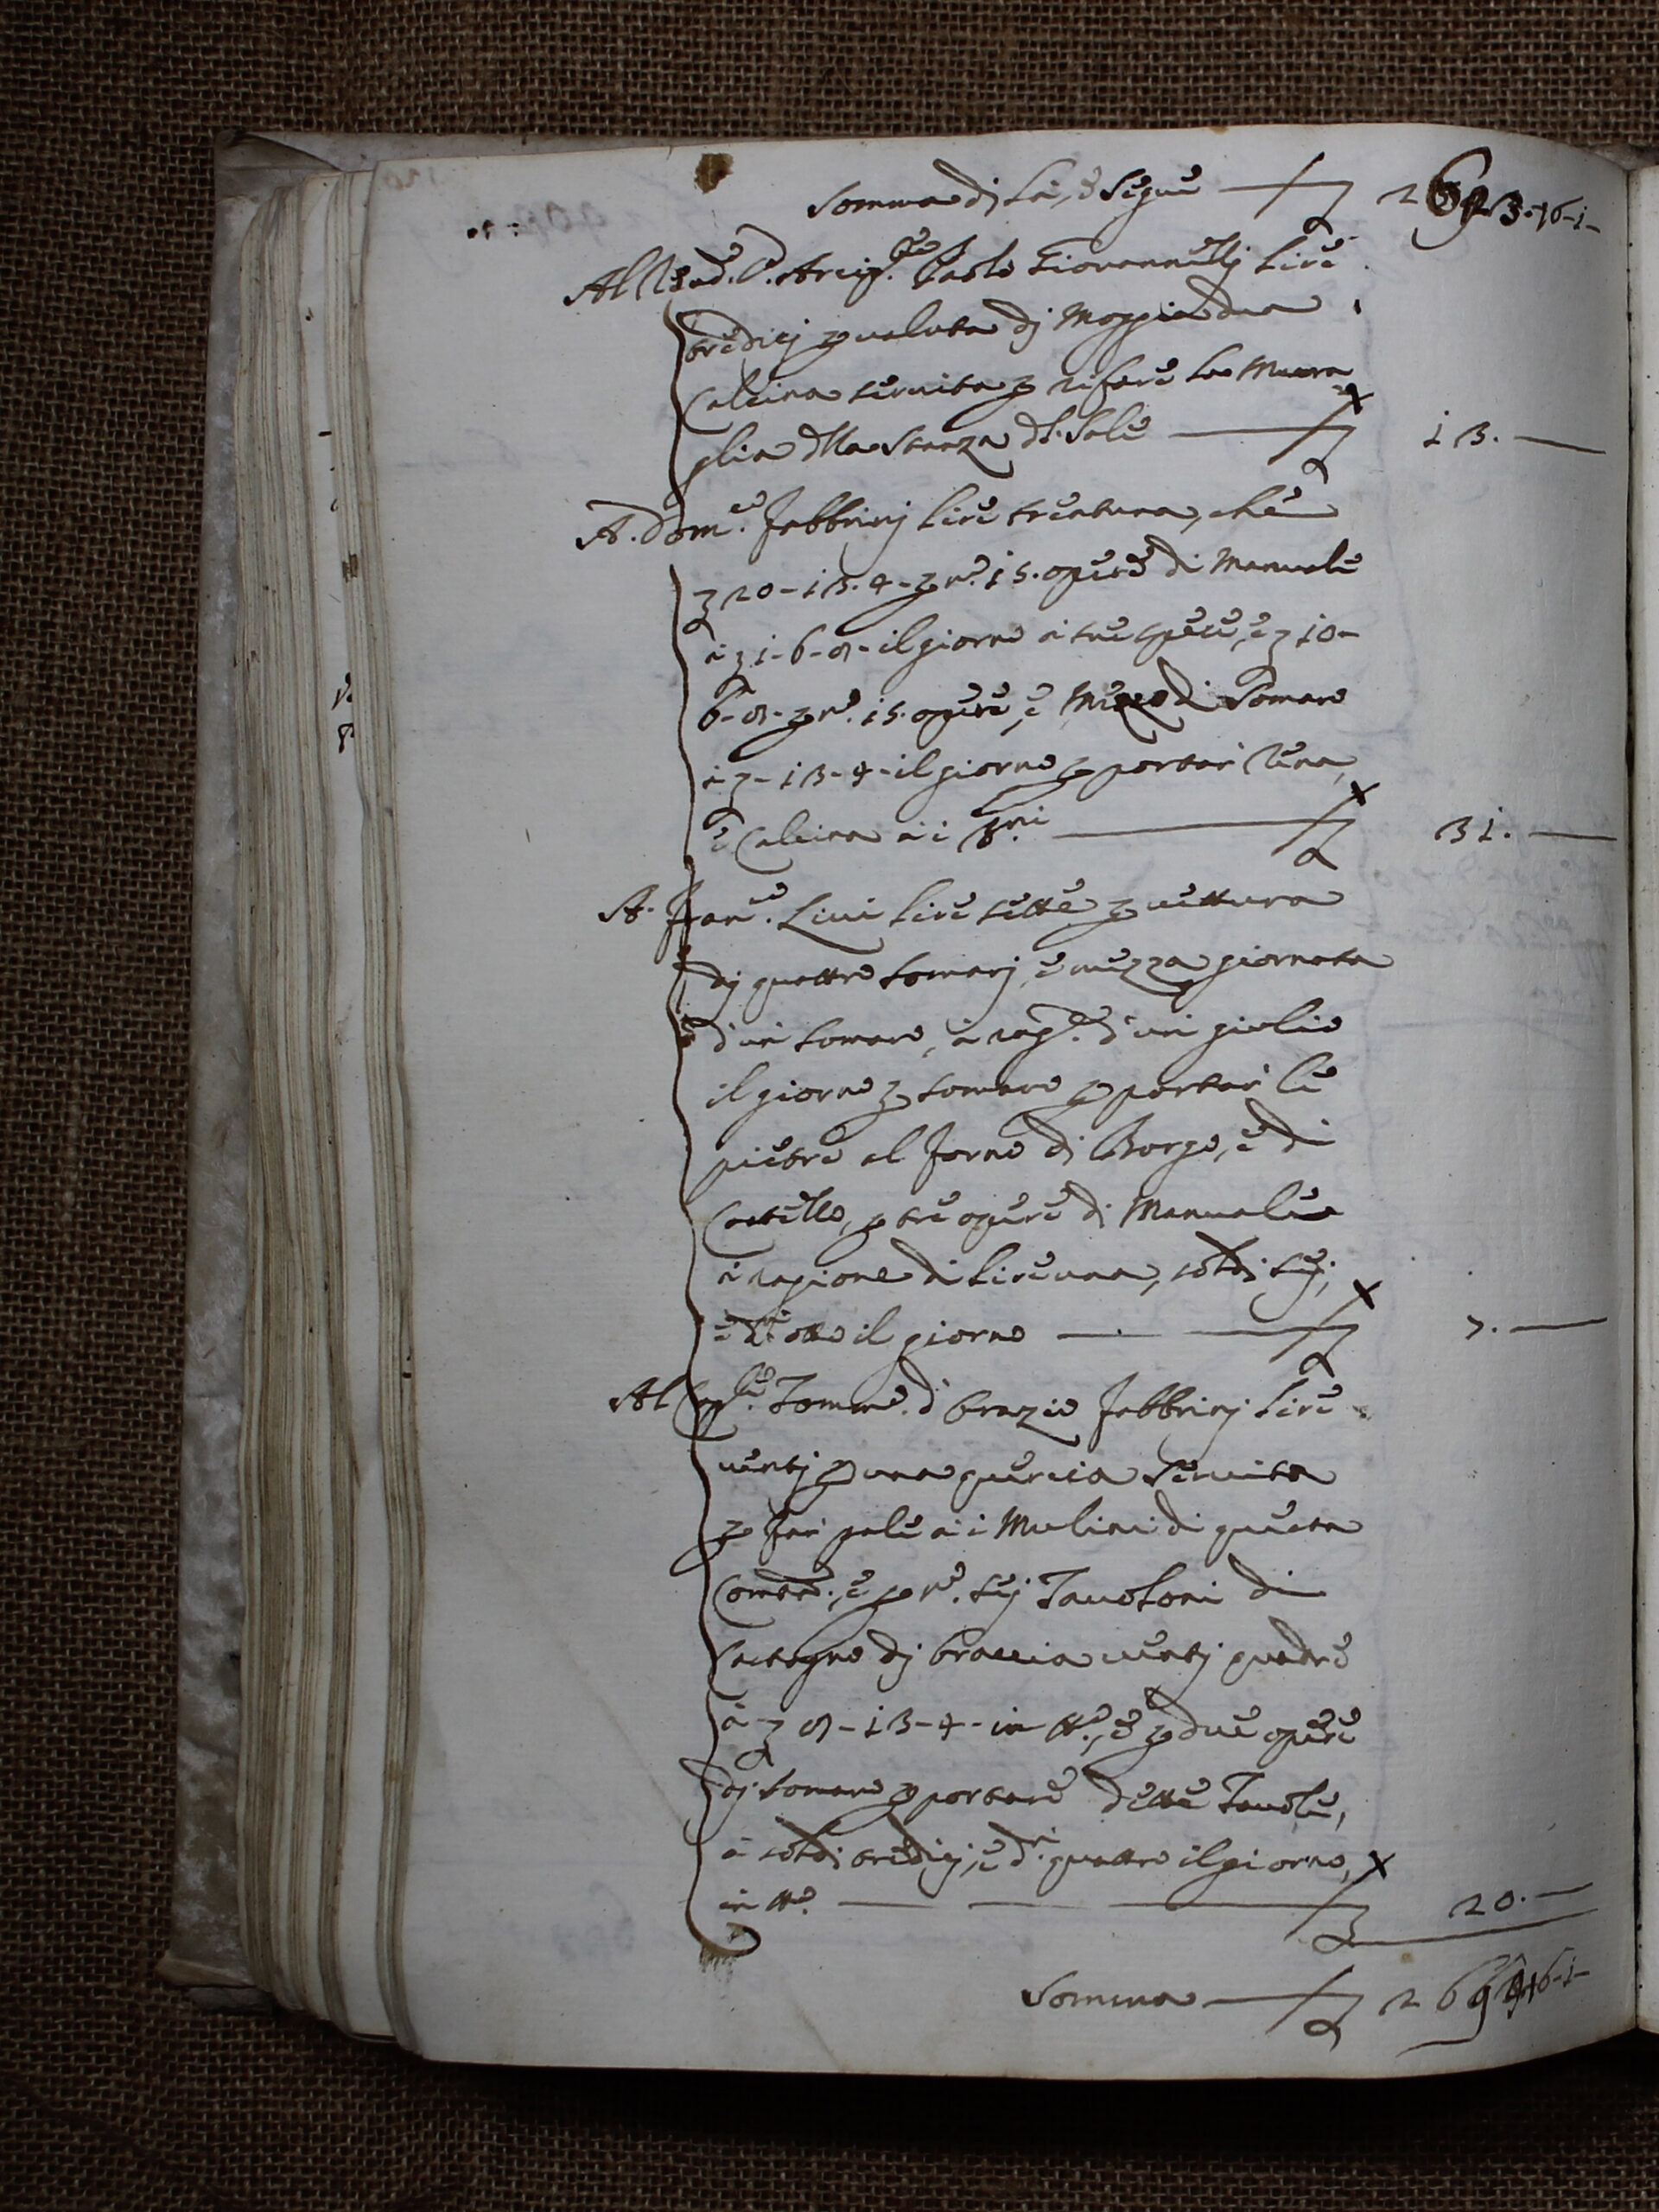 Somma di là, e segue £ 2623.16-1-
Al Rend. P. Arcip.te Paolo Giovannellj lire
tredicj p valuta dj Moggia dua
Calcina servita p rifare la Mura
glia dlla Stanza dl Sale £ 13.—
A. Dom.co Fabbrinj lire trentuna, che
£ 20-13.4- p n.o 15. opere di Manuale
à £ 1-6-8- il giorno à sue spese, e £ 10-
6-8- p n.o 15. opere, e Mezzo di Somaro
à £ -13-4- il giorno p portar Rena,
e Calcina ai £ 31.—
A. Fran.co Livi lire sette p vettura
dj quattro somarj, e mezza giornata
d'un somaro, à rag.e d'un giulio
il giorno p somaro p portar le
pietre al forno dj Borgo, e di
Castello, p tre opere dj Manuale
à ragione di lire una, soldi sej,
e d.i otto il giorno £ 7.—
Al Tomm.o d'Orazio Fabbrinj lire
ventj p una quercia servita
p far pale ai Mulini di questa
Comtà., e p n.o sej Tavoloni di
Castagno dj braccia ventj quadre
à £ 8-13-4- in tt.o, e p due opere
dj somaro p portare dette Tavole,
à soldi tredicj, e d.i quattro il giorno,
in tt.o £ 20.—
Somma £ 2694.16-1-